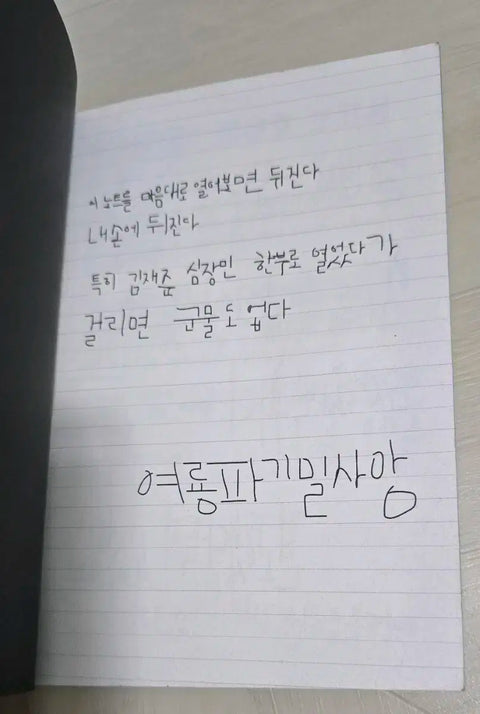 이 노트를 마음대로 열어보면 뒤진다
내손에 뒤진다
특히 김재준 심장민 한부로 열었다가
걸리면 국물도 업다
여룡파기밀사앙